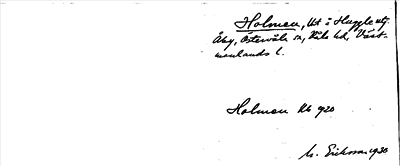 Holmen, Ut å Huggle utj.
Åby, Östervåla sn, Våla hd, Väst-
manlands l.
Holmen Kb 920
M. Eriksson 1930